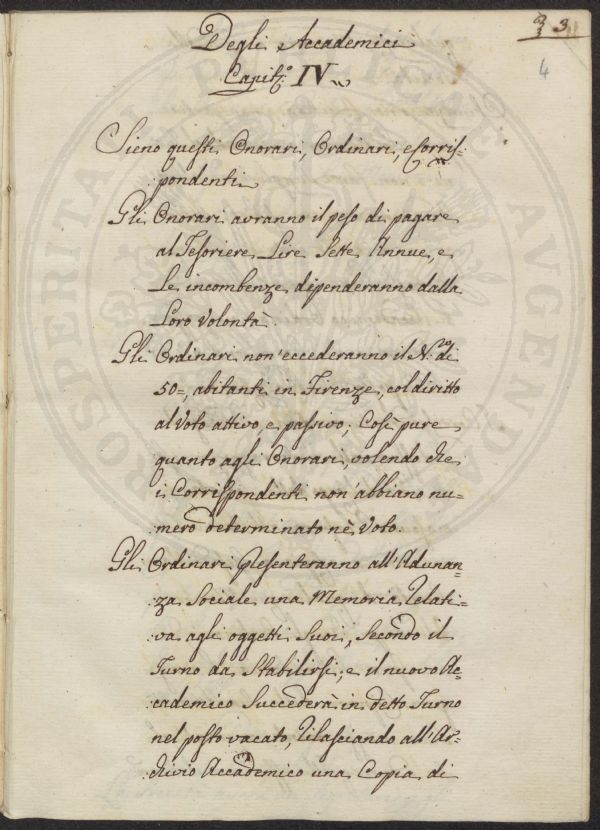 3 3
4
Degli Accademici
Capit.º IV
Sieno questi Onorari, Ordinari, e Corris-
pondenti
Gli Onorari avranno il peso di pagare
al Tesoriere Lire Sette Annue, e
Le incombenze dipenderanno dalla
Loro Volontà.
Gli Ordinari non'eccederanno il N.ro di
50=, abitanti in Firenze, col diritto
al Voto attivo, e passivo; Così pure
quanto agli Onorari, volendo che
i Corrispondenti non'abbiano nu-
mero determinato nè Voto.
Gli Ordinari Presenteranno all'Adunan-
za Sociale una Memoria Relati-
va agli oggetti Suoi, Secondo il
Turno da Stabilirsi; e il nuovo Ac-
cademico Succederà in detto Turno
nel posto vacato, Rilasciando all'Ar-
chivio Accademico una Copia di
PROSPERITATI PUBLICAE AUGENDAE